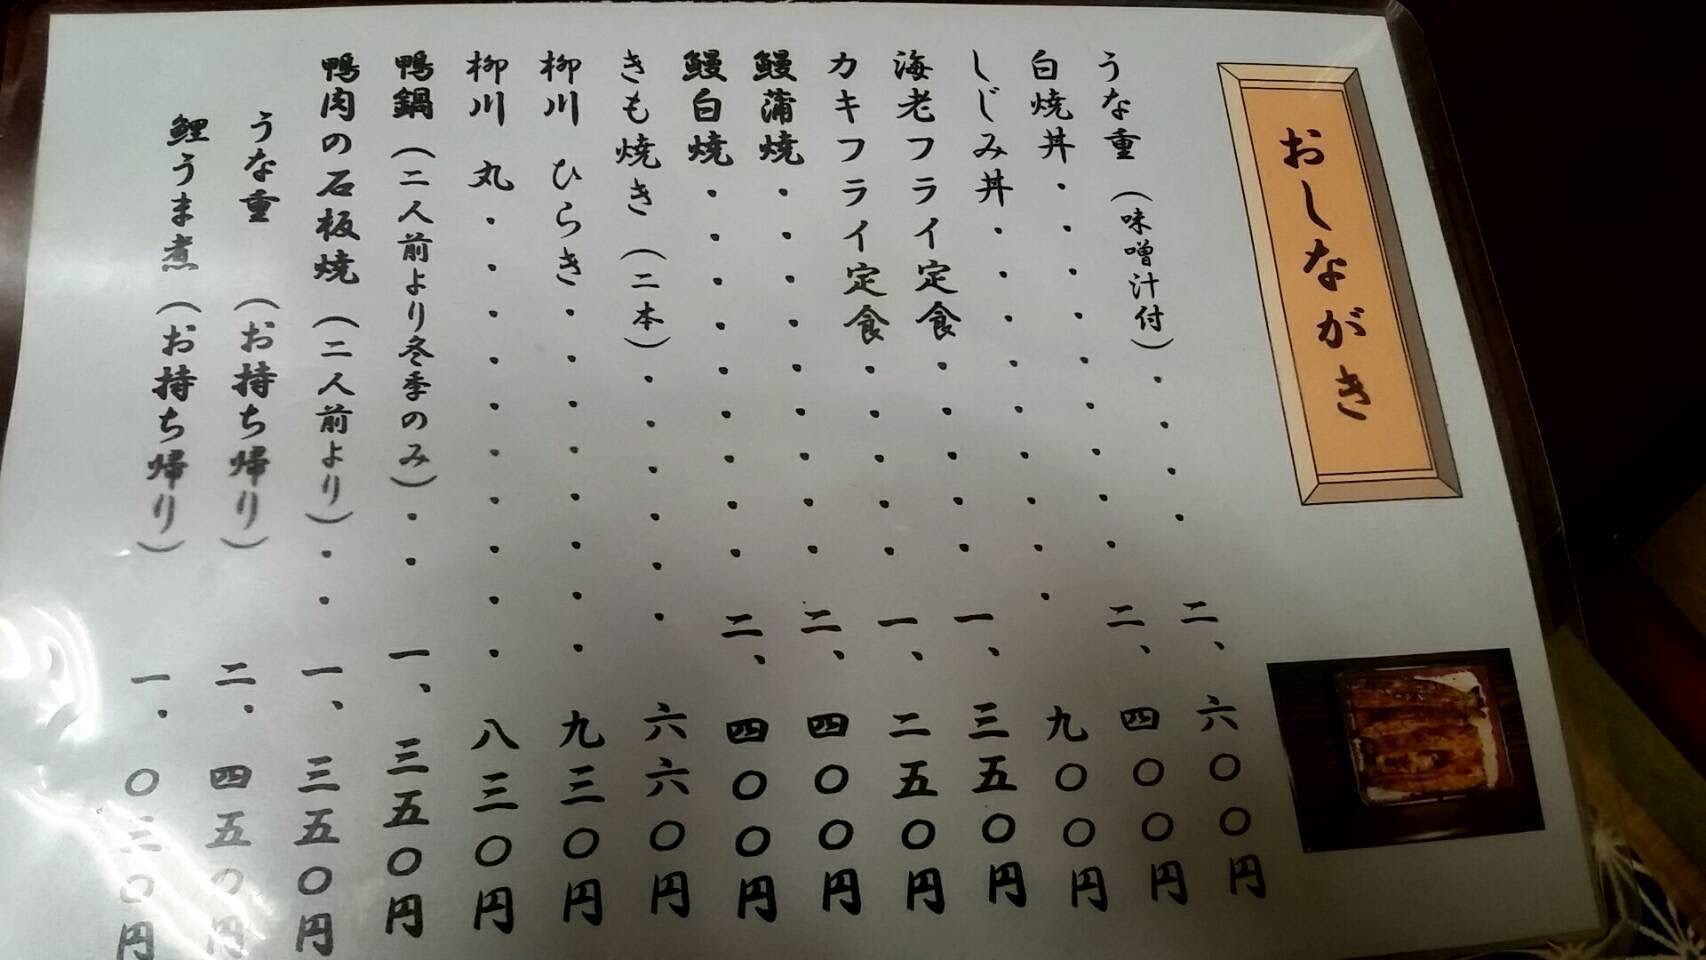 おしながき
うな重（味噌汁付）・・・・二、六〇〇円
白焼丼・・・・・・・・・二、四〇〇円
しじみ丼・・・・・・・・・九〇〇円
海老フライ定食・・・・・一、三五〇円
カキフライ定食・・・・・一、二五〇円
鰻蒲焼・・・・・・・・・二、四〇〇円
鰻白焼・・・・・・・・・二、四〇〇円
きも焼き（二本）・・・・・・六六〇円
柳川 ひらき・・・・・・・・九三〇円
柳川 丸・・・・・・・・・・八三〇円
鴨鍋（二人前より冬季のみ）・・一、三五〇円
鴨肉の石板焼（二人前より）・・一、三五〇円
うな重 （お持ち帰り） 二、四五〇円
鯉うま煮（お持ち帰り） 一、〇三〇円